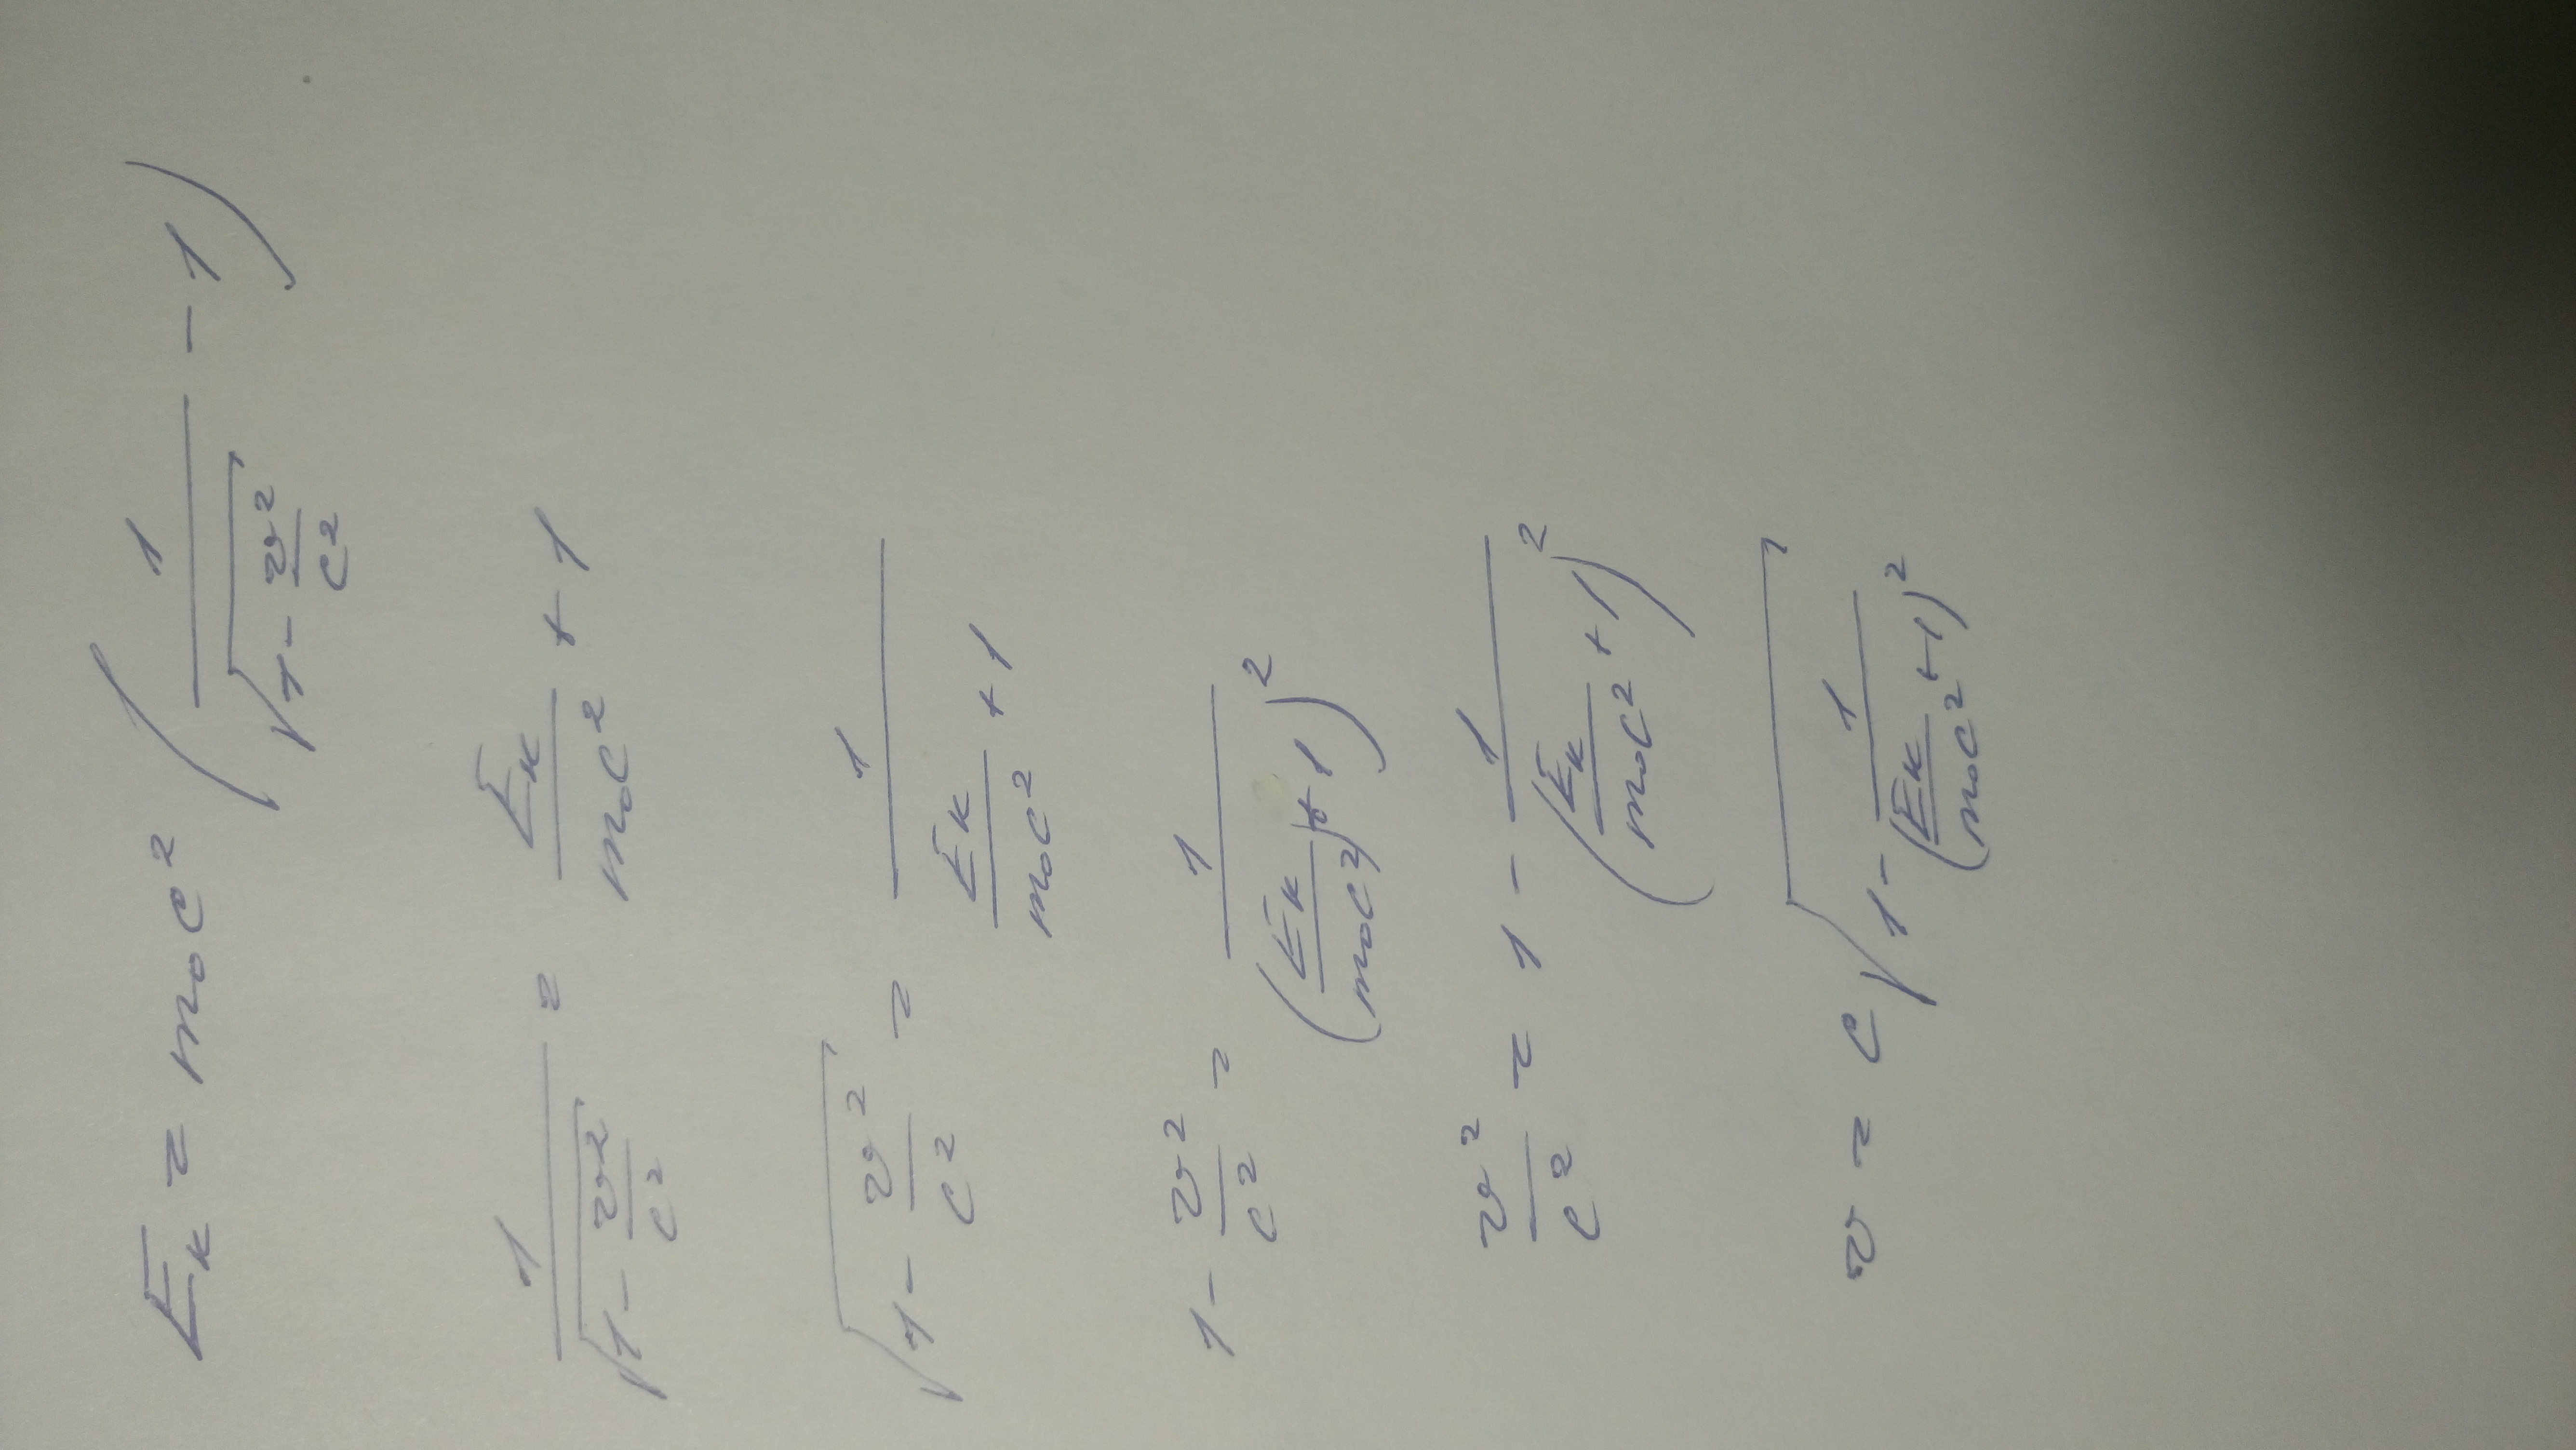 E_к = m₀c² (1/√(1 - v²/c²) - 1)
1/√(1 - v²/c²) = E_к/(m₀c²) + 1
√(1 - v²/c²) = 1/(E_к/(m₀c²) + 1)
1 - v²/c² = 1/(E_к/(m₀c²) + 1)²
v²/c² = 1 - 1/(E_к/(m₀c²) + 1)²
v = c√(1 - 1/(E_к/(m₀c²) + 1)²)